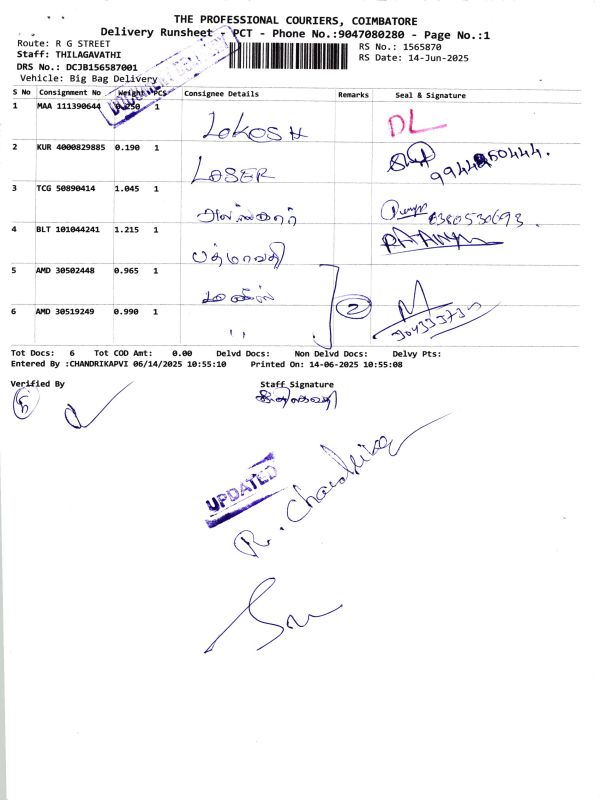 THE PROFESSIONAL COURIERS, COIMBATORE
Delivery Runsheet - PCT - Phone No.:9047080280 - Page No.:1
Route: R G STREET
RS No.: 1565870
Staff: THILAGAVATHI
RS Date: 14-Jun-2025
DRS No.: DCJB156587001
Vehicle: Big Bag Delivery
S No Consignment No Weight PCS Consignee Details Remarks Seal & Signature
1 MAA 111390644 0.250 1 LOKOSH DL
2 KUR 4000829885 0.190 1 LOSER
3 TCG 50890414 1.045 1
4 BLT 101044241 1.215 1 பத்மாவதி
5 AMD 30502448 0.965 1
2
6 AMD 30519249 0.990 1 "
Tot Docs: 6 Tot COD Amt: 0.00 Delvd Docs: Non Delvd Docs: Delvy Pts:
Entered By :CHANDRIKAPVI 06/14/2025 10:55:10 Printed On: 14-06-2025 10:55:08
Verified By
Staff Signature
5
UPDATED